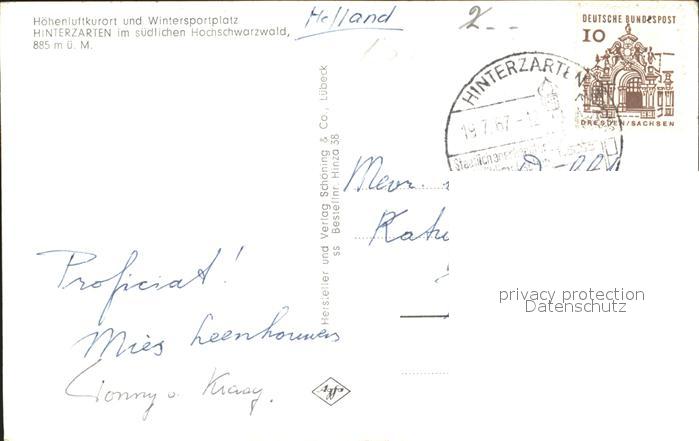 Höhenluftkurort und Wintersportplatz
HINTERZARTEN im südlichen Hochschwarzwald,
885 m ü. M.
Holland
DEUTSCHE BUNDESPOST
10
DRESDEN/SACHSEN
HINTERZARTEN
19.7.67-12
Hersteller und Verlag Schöning & Co., Lübeck
ss Bestellnr. Hinza 38
Mevr.
Proficiat!
Mies Leenhouwers
privacy protection
Datenschutz